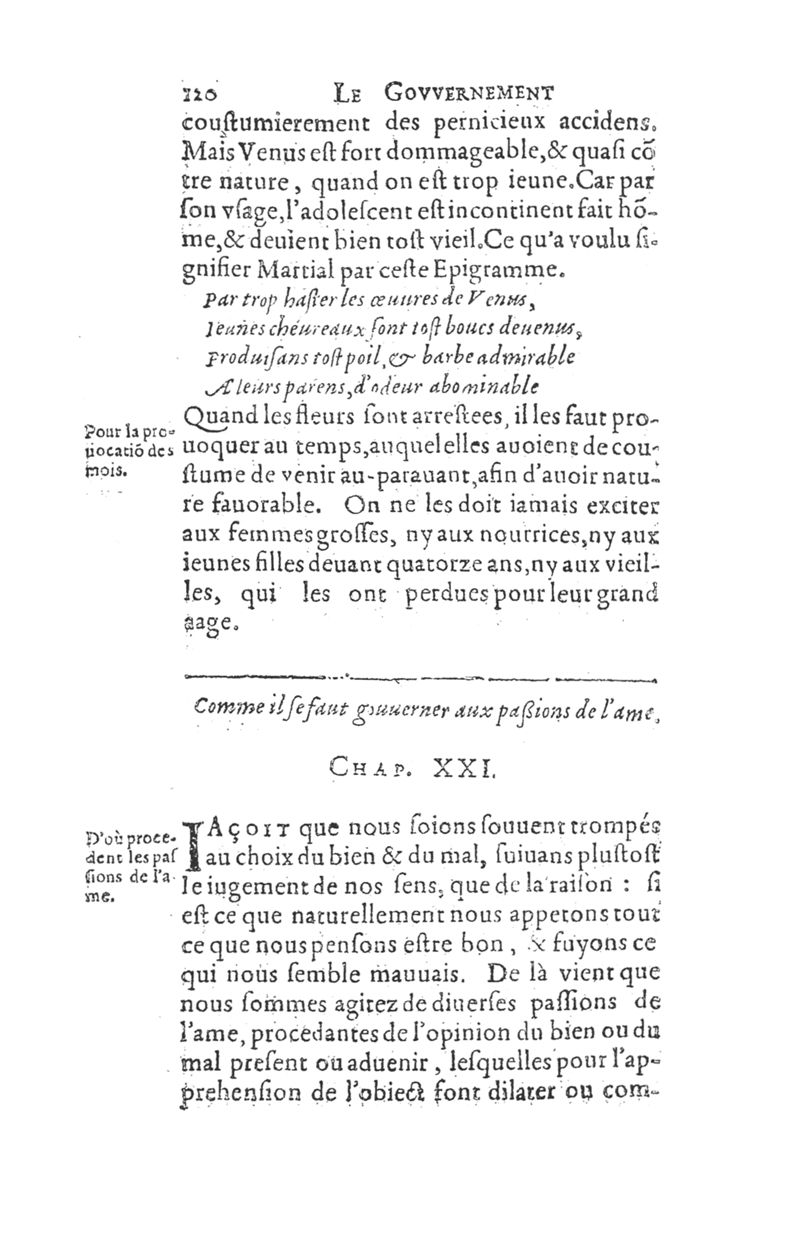 120 LE GOVVERNEMENT
couſtumierement des pernicieux accidens.
Mais Venus eſt fort dommageable,& quaſi cō
tre nature, quand on eſt trop ieune.Car par
ſon vſage,l'adoleſcent eſt incontinent fait hō-
me,& deuient bien toſt vieil.Ce qu'a voulu ſi-
gnifier Martial par ceſte Epigramme.
Par trop haſter les œuures de Venus,
Ieunes cheureaux ſont toſt boucs deuenus,
Produiſans toſt poil, & barbe admirable
A leurs parens, d'odeur abominable
Pour la pro-
uocatiō des
mois.
Quand les fleurs ſont arreſtees, il les faut pro-
uoquer au temps,auquel elles auoient de cou-
ſtume de venir au-parauant,afin d'auoir natu-
re fauorable. On ne les doit iamais exciter
aux femmes groſſes, ny aux nourrices,ny aux
ieunes filles deuant quatorze ans,ny aux vieil-
les, qui les ont perdues pour leur grand
aage.
Comme il ſe faut gouuerner aux paſsions de l'ame,
CHAP. XXI.
D'où proce-
dent les paſ
ſions de l'a
me.
IAçOIT que nous ſoions ſouuent trompés
au choix du bien & du mal, ſuiuans pluſtoſt
le iugement de nos ſens, que de la raiſon : ſi
eſt ce que naturellement nous appetons tout
ce que nous penſons eſtre bon, & fuyons ce
qui nous ſemble mauuais. De là vient que
nous ſommes agitez de diuerſes paſſions de
l'ame, procedantes de l'opinion du bien ou du
mal preſent ou aduenir, leſquelles pour l'ap-
prehenſion de l'obiect font dilater ou com-